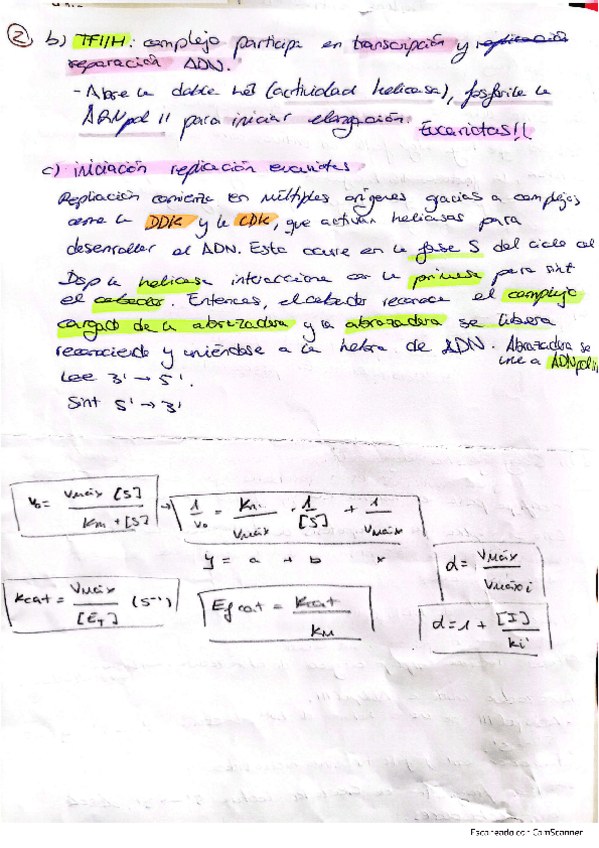 2 b) TFIIH: complejo participa en transcripción y replicación
reparación ADN.
- Abre la doble hél (actividad helicasa), fosforila la
ARNpol II para iniciar elongación. Eucariotas!!
c) iniciación replicación eucariotas
Replicación comienza en múltiples orígenes gracias a complejos
como la DDK y la CDK, que activan helicasas para
desenrollar el ADN. Esto ocurre en la fase S del ciclo cel
Dsp la helicasa interacciona con la primasa para sint
el cebador. Entonces, el cebador reconoce el complejo
cargador de la abrazadera y la abrazadera se libera
reconociendo y uniéndose a la hebra de ADN. Abrazadera se
une a ADNpol
Lee 3' → 5'.
Sint 5' → 3'
V₀ = Vmáx [S] / Km + [S] → 1/V₀ = Km/Vmáx · 1/[S] + 1/Vmáx
y = a + b x
d = Vmáx / Vmáx i
Kcat = Vmáx / [ET] (s⁻¹)
Ef cat = Kcat / KM
d = 1 + [I] / Ki'
Escaneado con CamScanner